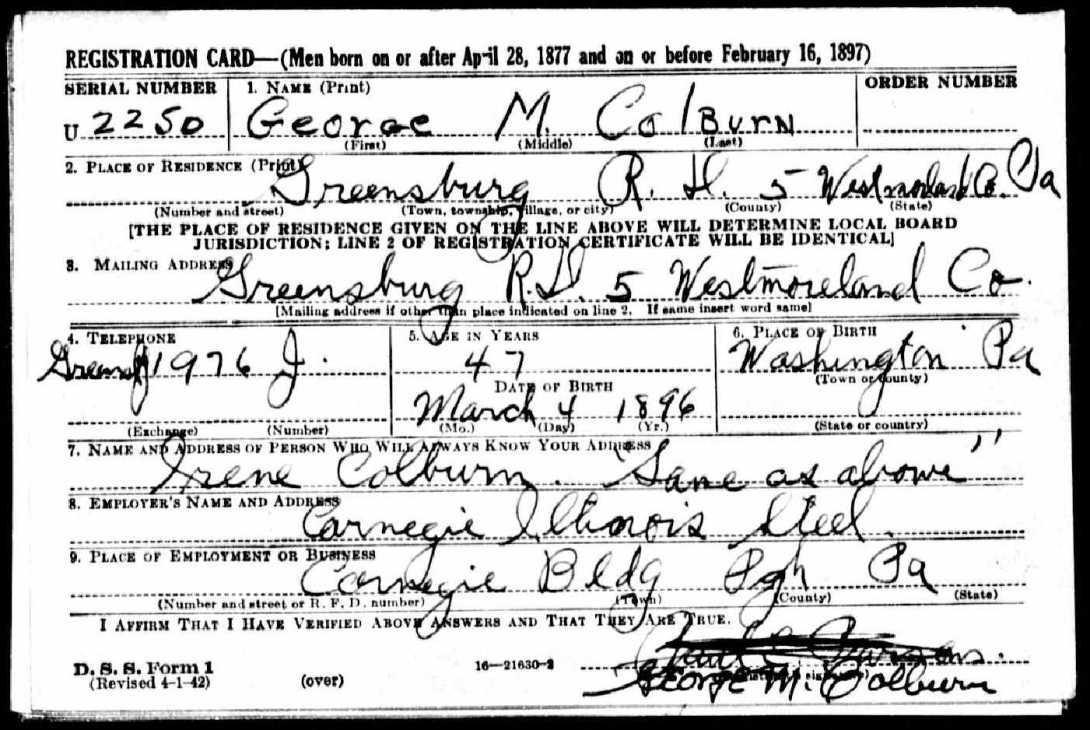 REGISTRATION CARD—(Men born on or after April 28, 1877 and on or before February 16, 1897)
SERIAL NUMBER 1. NAME (Print) ORDER NUMBER
U 2250 George M. Colburn
(First) (Middle) (Last)
2. PLACE OF RESIDENCE (Print)
Greensburg R. D. 5 Westmorland Co. Pa
(Number and street) (Town, township, village, or city) (County) (State)
[THE PLACE OF RESIDENCE GIVEN ON THE LINE ABOVE WILL DETERMINE LOCAL BOARD
JURISDICTION; LINE 2 OF REGISTRATION CERTIFICATE WILL BE IDENTICAL]
3. MAILING ADDRESS
Greensburg R.D. 5 Westmoreland Co.
[Mailing address if other than place indicated on line 2. If same insert word same]
4. TELEPHONE 5. AGE IN YEARS 6. PLACE OF BIRTH
1976 J. 47 Washington Pa
DATE OF BIRTH (Town or county)
March 4 1896
(Exchange) (Number) (Mo.) (Day) (Yr.) (State or country)
7. NAME AND ADDRESS OF PERSON WHO WILL ALWAYS KNOW YOUR ADDRESS
Irene Colburn. "Same as above"
8. EMPLOYER'S NAME AND ADDRESS
Carnegie Illinois Steel.
9. PLACE OF EMPLOYMENT OR BUSINESS
Carnegie Bldg Pgh Pa
(Number and street or R. F. D. number) (Town) (County) (State)
I AFFIRM THAT I HAVE VERIFIED ABOVE ANSWERS AND THAT THEY ARE TRUE.
D. S. S. Form 1 16—21630-2
(Revised 4-1-42) (over) George M. Colburn